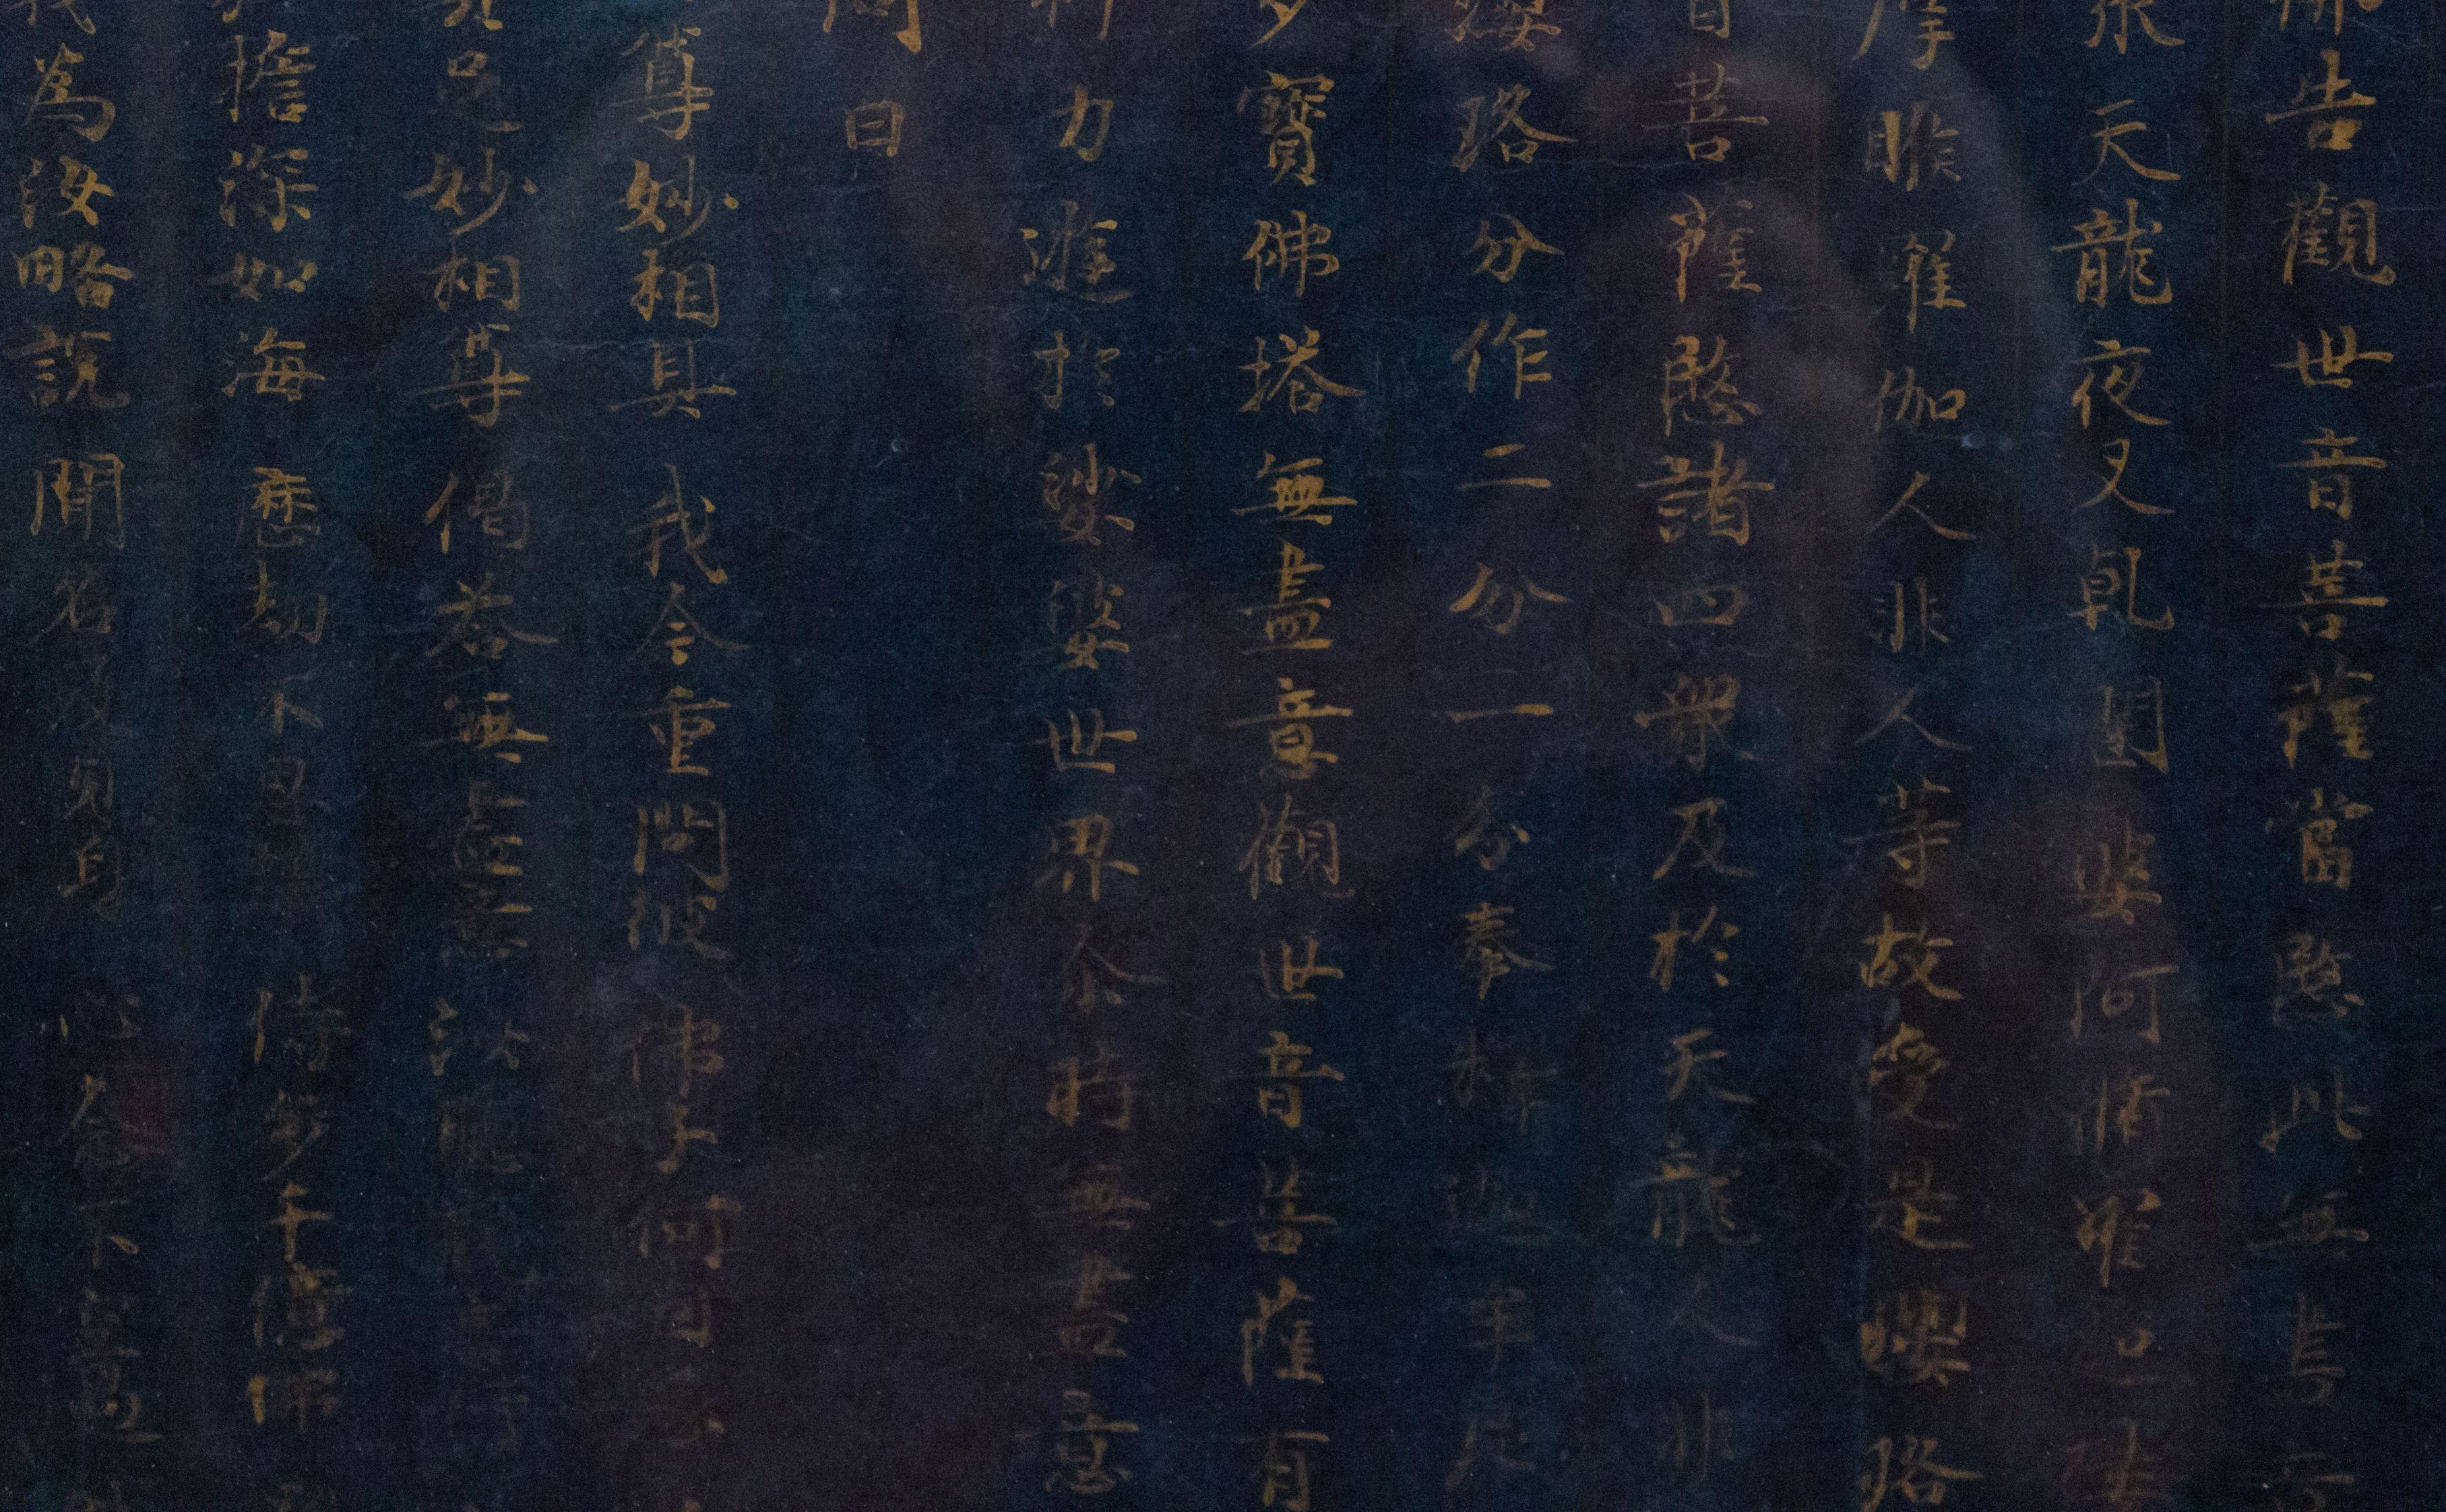 佛告觀世音菩薩當愍此無盡意
衆天龍夜叉乹闥婆阿脩羅迦樓
摩睺羅伽人非人等故受是瓔珞
音菩薩愍諸四衆及於天龍人非
瓔珞分作二分一分奉釋迦牟尼
多寶佛塔無盡意觀世音菩薩有
神力遊於娑婆世界尒時無盡意
問曰
尊妙相具 我今重問彼 佛子何因
具足妙相尊 偈荅無盡意 汝聽
擔深如海 歷劫不思議 侍多千億佛
我為汝略說 聞名及見身 心念不